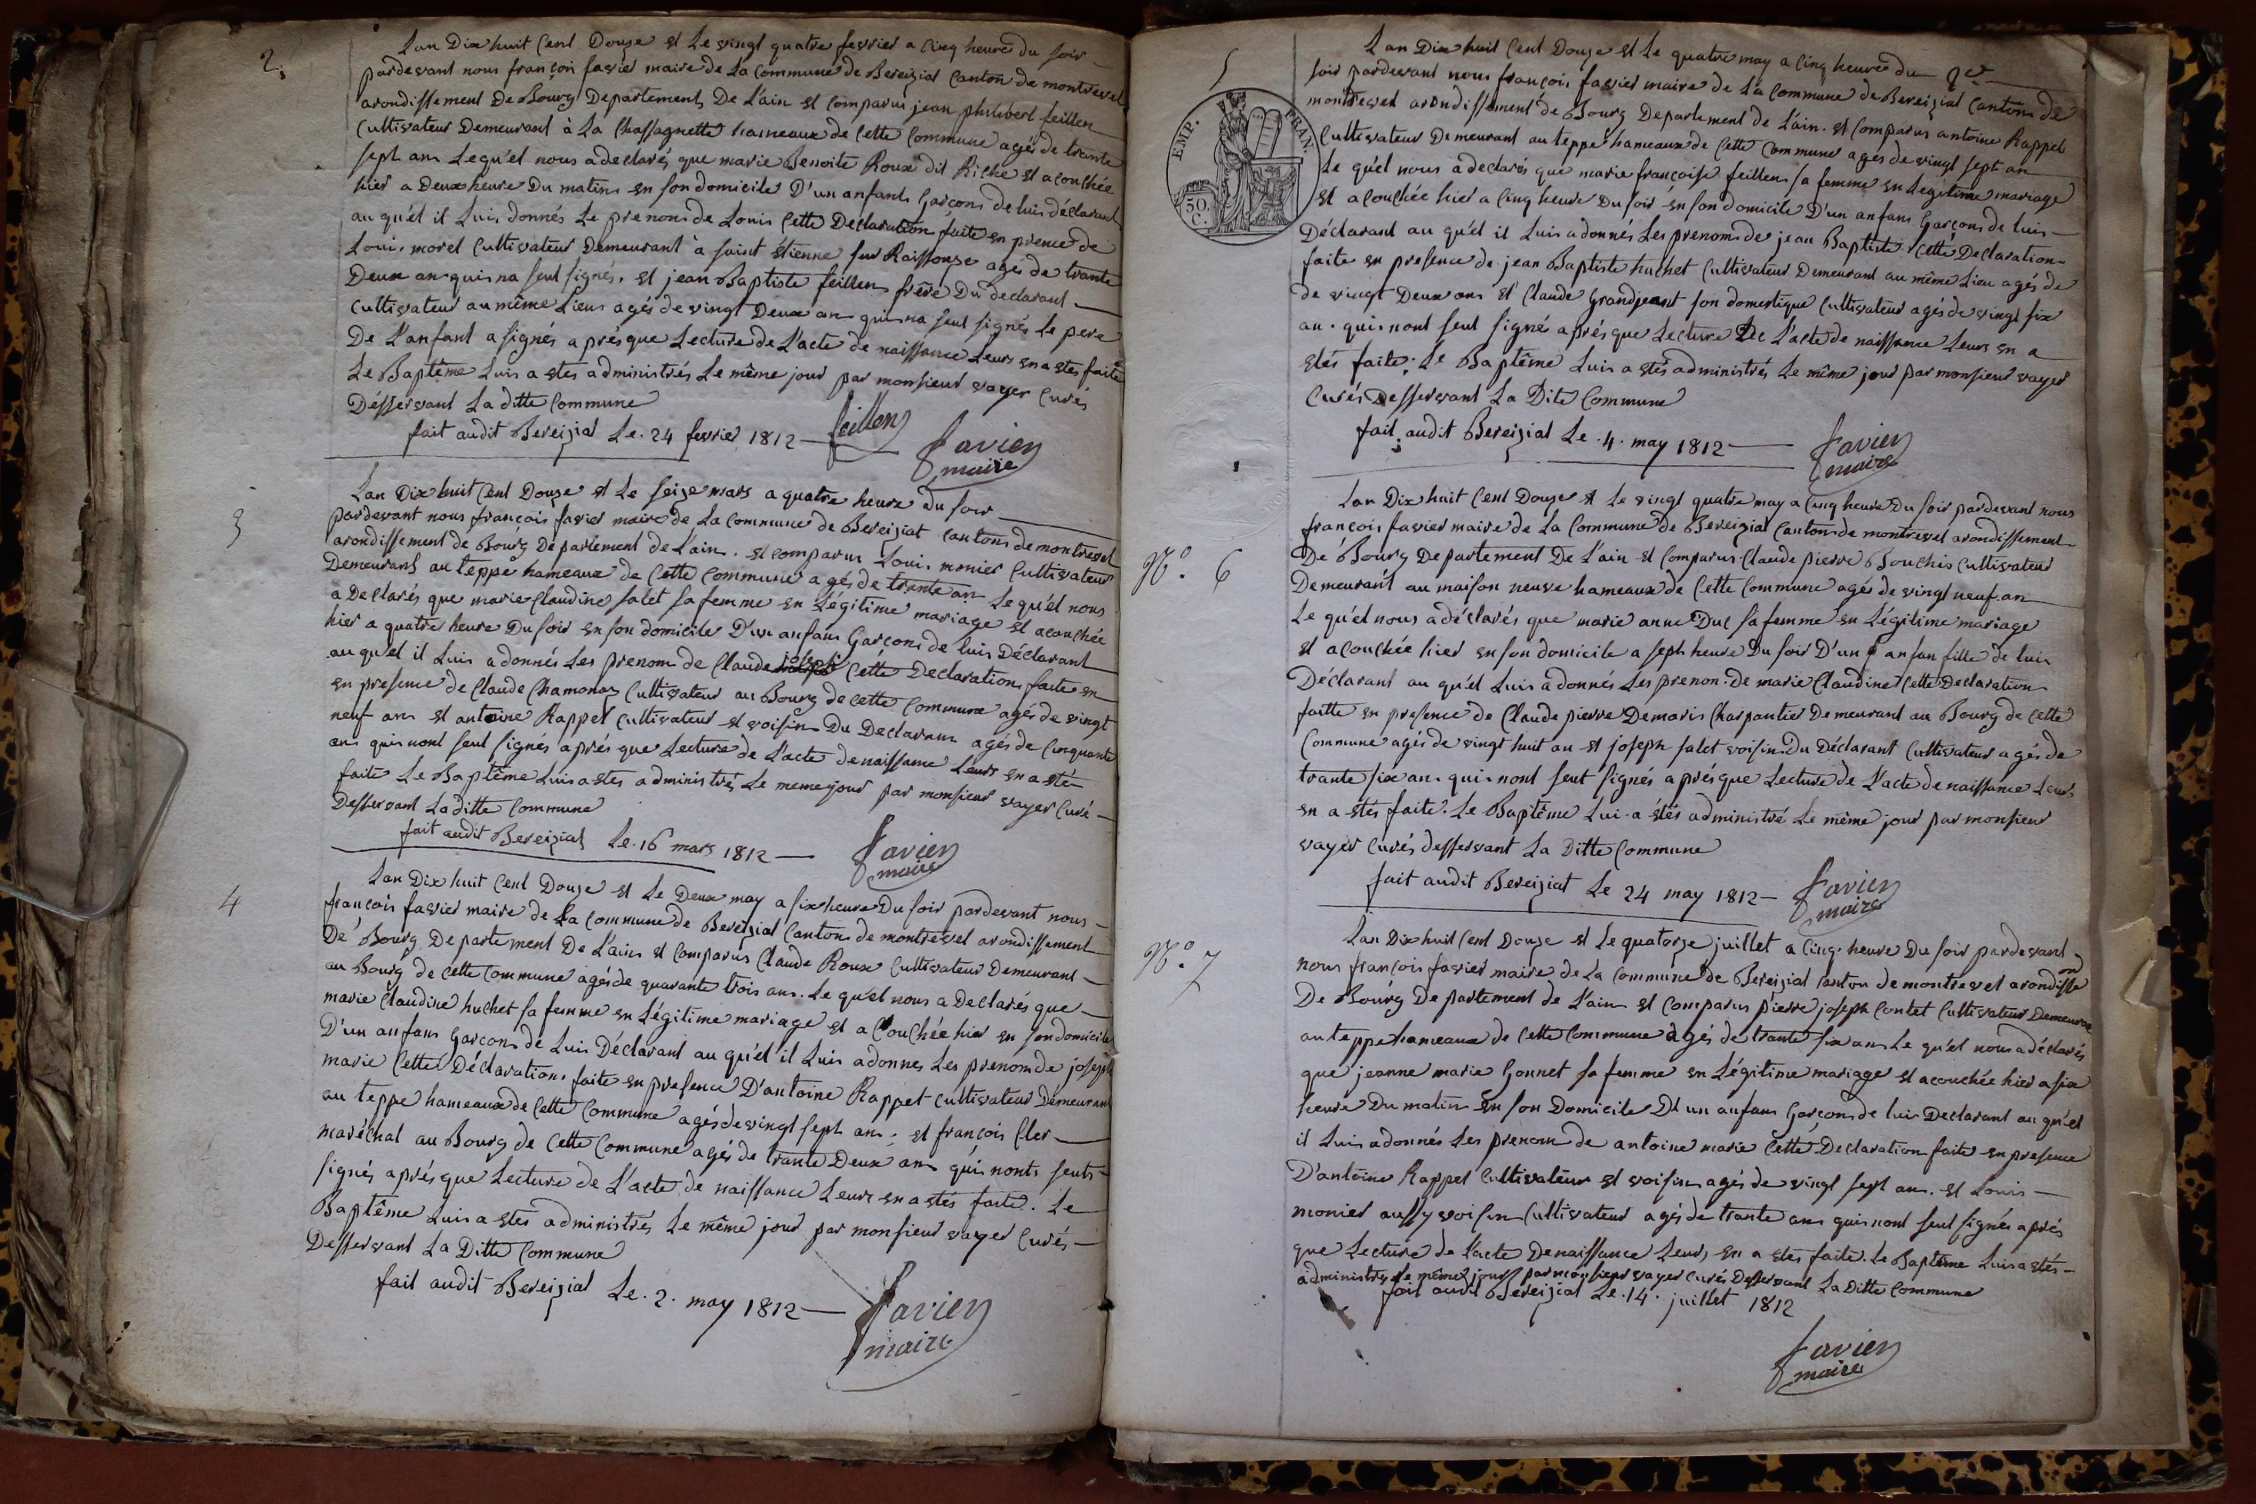 2.
Lan Dix huit Cent Douze et Le vingt quatre fevrier a Cinq heure du soir
pardevant nous françois favier maire de La Commune de Bereiziat Canton de montrevel
arondissement De Bourg Departement De L'ain est Comparus jean philibert feillen
Cultivateur Demeurant à La Chassagnette hameaux de Cette Commune agés de trente
sept ans Lequ'el nous a declarés que marie Benoite Roux dit Riche est acouchée
hier a Deux heure Du matin en son domicile D'un anfant Garçons de luis déclarant
au qu'el il Luis donnés Le prenom de Louis Cette Declaration faite en prence de
Loui morel Cultivateur Demeurant à saint Etienne sur Raissouze agé de trante
Deux an quis na seut signés. et jean Baptiste feillen frère Du declarant
Cultivateur au même Lieu agés de vingt Deux an quis na seut signés Le pere
De L'anfant a signés aprés que Lecture de L'acte de naissance Leurs en a étés faite
Le Baptême Luis a etes administrés Le même jour par monsieur vayer Curés
Déssersant La ditte Commune
fait audit Bereiziat Le. 24 fevrier 1812 feillen
favier
maire
3
Lan Dix huit Cent Douze et Le seize mars a quatre heure du soir
pardevant nous françois favier maire de La Commune de Bereiziat Canton de montrevel
arondissement de Bourg Departement de L'ain. est comparus Loui monier Cultivateur
Demeurant au teppe hameaux de Cette Commune agés de trente an Le qu'el nous
a Declarés que marie Claudine salet sa femme en Légitime mariage est acouchée
hier a quatre heure Du soir en son domicile D'un anfans Garçons de luis Déclarant
au qu'el il Luis a donnés Les prenom de Claude joseph Cette Declaration faite en
en presence de Claude Chamonas Cultivateur au Bourg de cette Commune agés de vingt
neuf ans et antoine Rappet Cultivateur et voisin Du Declarans agés de Cinquante
ans quis nont seut signés aprés que Lecture de L'acte de naissance Leurs en a été
faite Le Baptême Luis a etes administrés Le meme jour par monsieur vayer Curé
Dessersant La ditte Commune
fait audit Bereiziat Le. 16 mars 1812
favier
maire
4
Lan Dix huit Cent Douze et Le Deux may a six heure Du soir pardevant nous
françois favier maire de La Commune de Bereiziat Canton de montrevel arondissement
De Bourg Departement De L'ain est Comparus Claude Roux Cultivateur Demeurant
au Bourg de cette Commune agés de quarante trois ans. Le qu'el nous a Declarés que
marie Claudine huchet sa femme en Légitime mariage est acouchée hier en son domicile
D'un anfans Garçons de Luis Déclarant au qu'el il Luis a donnes Les prenom de joseph
marie Cette Déclaration faite en presence D'antoine Rappet Cultivateur Demeurant
au teppe hameaux de Cette Commune agés de vingt sept ans. et françois Cler
maréchal au Bourg de Cette Commune agés de trante Deux ans quis nonts seuts
signés aprés que Lecture de L'acte de naissance Leurs en a étés faite. Le
Baptême Luis a etes administrés Le même jour par monsieur vayer Curés
Dessersant La Ditte Commune
fait audit Bereiziat Le. 2. may 1812
favier
maire
5
EMP. FRAN.
50. C.
Lan Dix huit Cent Douze et Le quatre may a Cinq heure du
soir pardevant nous françois favier maire de La Commune de Bereiziat Canton de
montrevel arondissement de Bourg Departement de L'ain. est Comparus antoine Rappet
Cultivateur Demeurant au teppe hameaux de Cette Commune agés de vingt sept an
Le qu'el nous a declarés que marie françoise feillen sa femme en Legitime mariage
est acouchée hier a Cinq heure Du soir en son domicile D'un anfans Garçons de luis
Déclarant au qu'el il Luis a donnés Les prenom de jean Baptiste Cette Declaration
faite en presence de jean Baptiste huchet Cultivateur Demeurant au même Lieu agés de
de vingt Deux ans et Claude Grandjeant son domestique Cultivateur agés de vingt six
an. quis nont seut signé aprés que Lecture De L'acte de naissance Leurs en a
etés faite. Le Baptême Luis a étés administrés Le même jour par monsieur vayer
Curés Dessersant La Dite Commune
fait audit Bereiziat Le. 4. may 1812
favier
maire
N°. 6
Lan Dix huit Cent Douze et Le vingt quatre may a Cinq heure Du soir pardevant nous
françois favier maire de La Commune de Bereiziat Canton de montrevel arondissement
De Bourg Departement De L'ain est Comparus Claude pierre Bouchis Cultivateur
Demeurant au maison neuve hameaux de Cette Commune agés de vingt neuf an
Le qu'el nous a déclarés que marie anne Duc sa femme en Légitime mariage
est acouchée hier en son domicile a sept heure Du soir D'un anfan fille de luis
Déclarant au qu'el Luis a donnés Les prenon. De marie Claudine Cette Declaration
faitte en presence de Claude pierre Demaris Charpantier Demeurant au Bourg de Cette
Commune agés de vingt huit an et joseph salet voisin du Déclarant Cultivateur agés de
trante six an. quis nont seut signés aprés que Lecture de L'acte de naissance Leurs
en a étés faite. Le Baptême Lui a étés administré Le même jour par monsieur
vayer Curés dessersant La Ditte Commune
fait audit Bereiziat Le 24 may 1812
favier
maire
N°. 7
Lan Dix huit Cent Douze et Le quatorze juillet a Cinq. heure Du soir pardevant
nous françois favier maire de La Commune de Bereiziat Canton de montrevel arondisse
De Bourg Departement de L'ain est Comparus pierre joseph Contet Cultivateur Demeurant
au teppe hameaux de Cette Commune agés de trante six ans Le qu'el nous a déclarés
que jeanne marie Gonnet sa femme en Légitime mariage est acouchée hier a six
heure Du matin en son Domicile D'un anfans Garçons de luis Declarant au qu'el
il Luis a donnés Les prenom de antoine marie Cette Declaration faite en presence
D'antoine Rappet Cultivateur et voisin agés de vingt sept ans. et Louis
monier aussy voisin Cultivateur agés de trante ans quis nont seut signés aprés
que Lecture de L'acte De naissance Leurs en a etes faite. Le Baptême Luis a étés
administrés Le même jour par monsieur vayer Curés Dessersant La Ditte Commune
fait audit Béréiziat Le. 14. juillet 1812
favier
maire